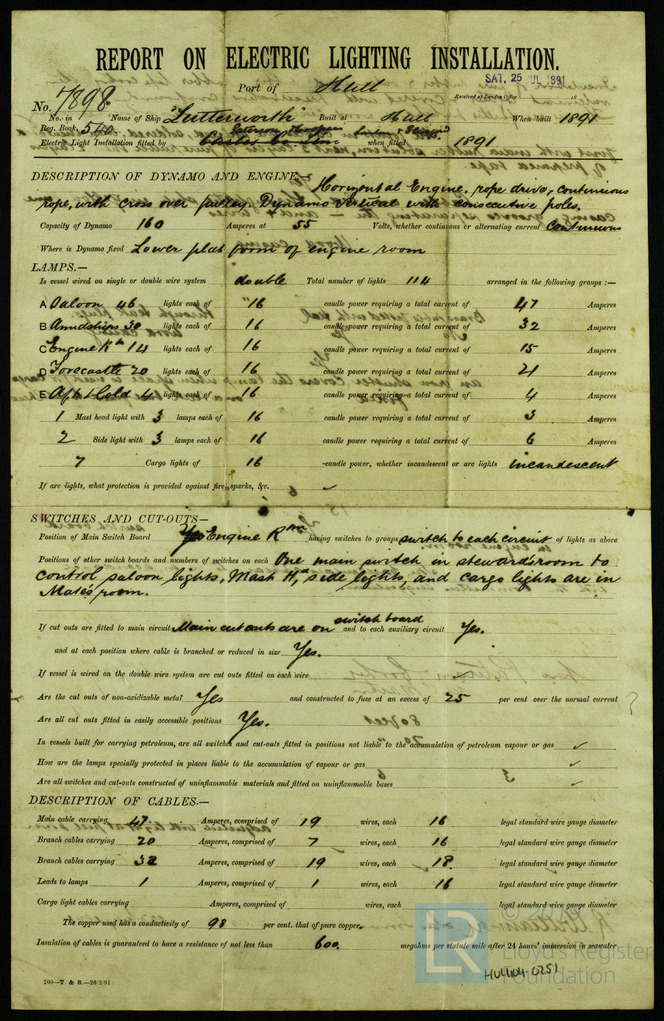 REPORT ON ELECTRIC LIGHTING INSTALLATION.
SAT. 25 JUL 1891
Port of Hull
Received at London Office
No. 7898
No. in Name of Ship "Lutterworth" Built at Hull When built 1891
Reg. Book. 540
Electric Light Installation fitted by when fitted 1891
DESCRIPTION OF DYNAMO AND ENGINE— Horizontal Engine, rope drive, continuous
rope, with cross over pulley. Dynamo Vertical with consecutive poles.
Capacity of Dynamo 160 Amperes at 55 Volts, whether continuous or alternating current Continuous
Where is Dynamo fixed Lower plat form of engine room
LAMPS.—
Is vessel wired on single or double wire system double Total number of lights 114 arranged in the following groups :—
A Saloon 46 lights each of 16 candle power requiring a total current of 47 Amperes
B Amidships 30 lights each of 16 candle power requiring a total current of 32 Amperes
C Engine Rm 14 lights each of 16 candle power requiring a total current of 15 Amperes
D Forecastle 20 lights each of 16 candle power requiring a total current of 21 Amperes
E Aft Hold 4 lights each of 16 candle power requiring a total current of 4 Amperes
1 Mast head light with 3 lamps each of 16 candle power requiring a total current of 3 Amperes
2 Side light with 3 lamps each of 16 candle power requiring a total current of 6 Amperes
7 Cargo lights of 16 -candle power, whether incandescent or arc lights incandescent
If arc lights, what protection is provided against fire, sparks, &c. ✓
SWITCHES AND CUT-OUTS—
Position of Main Switch Board Engine Rm having switches to groups switch to each circuit of lights as above
Positions of other switch boards and numbers of switches on each One main switch in stewards room to
control saloon lights, Mast Hd, side lights, and cargo lights are in
Mate's room.
If cut outs are fitted to main circuit Main cut outs are on switch board and to each auxiliary circuit Yes.
and at each position where cable is branched or reduced in size Yes.
If vessel is wired on the double wire system are cut outs fitted on each wire
Are the cut outs of non-oxidizable metal Yes and constructed to fuse at an excess of 25 per cent over the normal current ?
Are all cut outs fitted in easily accessible positions Yes.
In vessels built for carrying petroleum, are all switches and cut-outs fitted in positions not liable to the accumulation of petroleum vapour or gas ✓
How are the lamps specially protected in places liable to the accumulation of vapour or gas ✓
Are all switches and cut-outs constructed of uninflammable materials and fitted on uninflammable bases ✓
DESCRIPTION OF CABLES.—
Main cable carrying 47. Amperes, comprised of 19 wires, each 16 legal standard wire gauge diameter
Branch cables carrying 20 Amperes, comprised of 7 wires, each 16 legal standard wire gauge diameter
Branch cables carrying 32 Amperes, comprised of 19 wires, each 18. legal standard wire gauge diameter
Leads to lamps 1 Amperes, comprised of 1 wires, each 16 legal standard wire gauge diameter
Cargo light cables carrying Amperes, comprised of wires, each legal standard wire gauge diameter
The copper used has a conductivity of 98 per cent. that of pure copper.
Insulation of cables is guaranteed to have a resistance of not less than 600. megohms per statute mile after 24 hours' immersion in seawater
100—T. & S.—26/2/91
LR
Lloyd's Register
Foundation
HUL404-0251